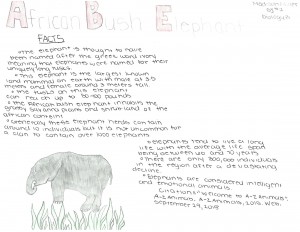 African Bush Elephant
FACTS
• The elephant is thought to have
been named after the greek word ivory
meaning that elephants were named for their
uniquely long tusks.
• This elephant is the largest known
land mammal on earth with male at 3.5
meters and female around 3 meters tall.
• The tusks on this elephant
can reach up to 50-100 pounds
• The African bush elephant inhabits the
grassy savanna plains and shrub-land of the
african continent
• Generally these elephant herds contain
around 10 individuals but it is not uncommon for
a clan to contain over 1000 elephants
• elephants tend to live a long
life with the average life span
being between 60 and 70 years
• There are only 300,000 individuals
in the region after a devastating
decline
• Elephants are considered intelligent
and emotional animals.
Citations: "Welcome to A-Z Animals".
A-Z Animals. A-Z Animals, 2015. Web.
September 24, 2015